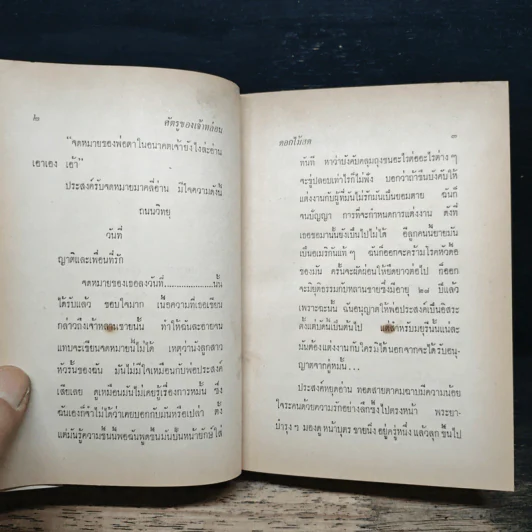 ๒
ศัตรูของเจ้าหล่อน
"จดหมายของพ่อตาในอนาคตเจ้ายังไงล่ะอ่าน
เอาเอง เอ้า"
ประสงค์รับจดหมายมาคลี่อ่าน มีใจความดังนี้
ถนนวิทยุ
วันที่
ญาติและเพื่อนที่รัก
จดหมายของเธอลงวันที่....................นั้น
ได้รับแล้ว ขอบใจมาก เนื้อความที่เธอเขียน
กล่าวถึงเจ้าหลานชายนั้น ทำให้ฉันละอายจน
แทบจะเขียนจดหมายนี้ไม่ได้ เหตุว่านังลูกสาว
หัวรั้นของฉัน มันไม่มีใจเหมือนกับพ่อประสงค์
เสียเลย ดูเหมือนมันไม่เคยรู้เรื่องการหมั้น ซึ่ง
ฉันเองก็จำไม่ได้ว่าเคยบอกกับมันหรือเปล่า ครั้ง
แต่มันรู้ความขึ้นนี้พอฉันพูดขึ้นมันปั้นหน้ายักษ์ใส่
ดอกไม้สด
๓
ทันที หาว่ายังคับคลุมถุงชนอะไรต่ออะไรต่าง ๆ
จะขู่ปลอบเท่าไรก็ไม่ฟัง บอกว่าถ้าขืนบังคับให้
แต่งงานกับผู้ที่มันไม่รักมันเป็นยอมตาย ฉันก็
จนปัญญา การที่จะกำหนดการแต่งงาน ดังที่
เธอขอมานั้นยังเป็นไปไม่ได้ อีลูกคนนี้ยายมัน
เป็นอเมริกันแท้ ๆ ฉันก็ออกจะคร้ามโรคหัวดื้อ
ของมัน ครั้นจะผัดผ่อนให้ยืดยาวต่อไป ก็ออก
จะไม่ยุติธรรมกับหลานชายซึ่งมีอายุ ๒๘ ปีแล้ว
เพราะฉะนั้น ฉันอนุญาตให้พ่อประสงค์เป็นอิสระ
ตั้งแต่บัดนี้เป็นต้นไป แต่เจ้าหรับมยุรีนั้นแน่ละ
มันต้องแต่งงานกับใครมิได้นอกจากจะได้รับอนุ-
ญาตจากคู่หมั้น...
ประสงค์หยุดอ่าน ทอดสายตาคมฉาบมีความน้อย
ใจระคนด้วยความรักอย่างลึกซึ้งไปตรงหน้า พระยา-
บำรุง ๆ มองดูหน้าบุตรชายนิ่งอยู่ครู่หนึ่ง แล้วลุกขึ้นไป